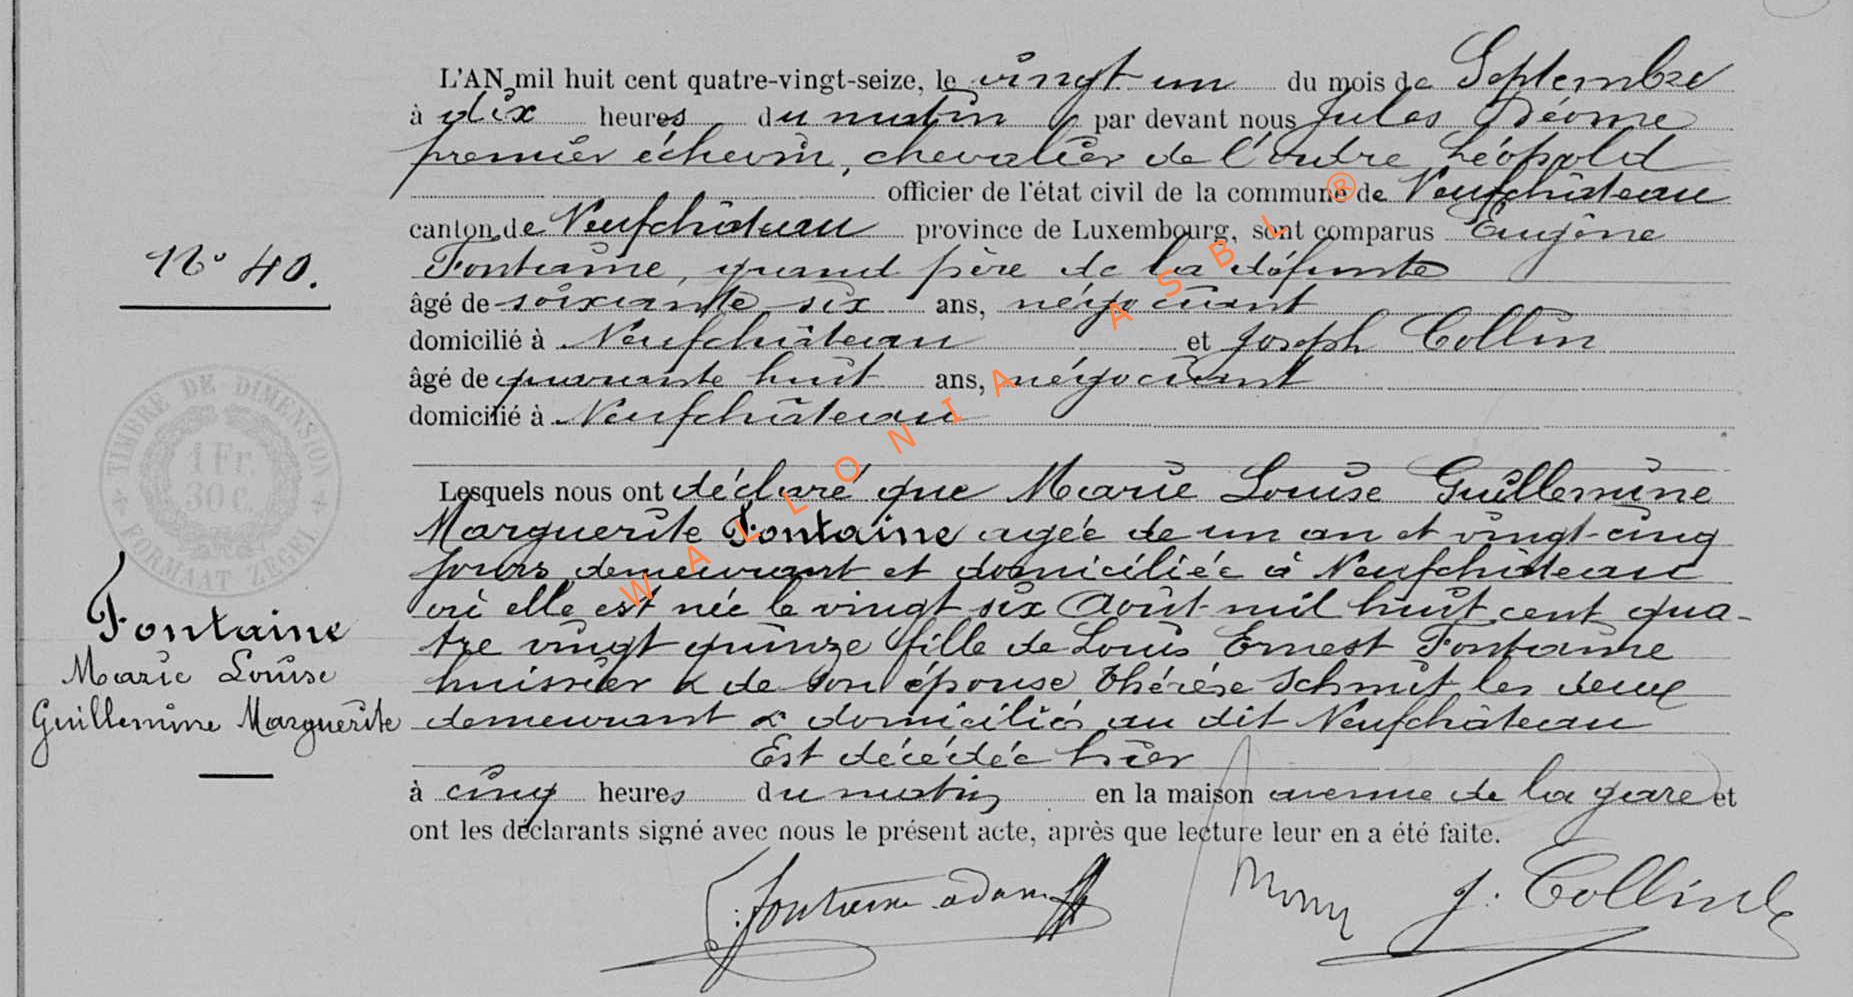 L'AN mil huit cent quatre-vingt-seize, le vingt un du mois de Septembre
à dix heures du matin par devant nous Jules Déome
premier échevin, chevalier de l'ordre Léopold
officier de l'état civil de la commune de Neufchâteau
canton de Neufchâteau province de Luxembourg, sont comparus Eugène
Fontaine, grand père de la défunte
âgé de soixante six ans, négociant
domicilié à Neufchâteau et Joseph Collin
âgé de quarante huit ans, négociant
domicilié à Neufchâteau
N° 40.
TIMBRE DE DIMENSION
1 Fr.
30 C.
FORMAAT ZEGEL
Lesquels nous ont déclaré que Marie Louise Guillemine
Marguerite Fontaine agée de un an et vingt-cinq
jours demeurant et domiciliée à Neufchâteau
où elle est née le vingt six Août mil huit cent qua-
tre vingt quinze fille de Louis Ernest Fontaine
huissier & de son épouse Thérèse Schmit les deux
demeurant & domiciliés au dit Neufchâteau
Est décédée hier
à cinq heures du matin en la maison avenue de la gare et
ont les déclarants signé avec nous le présent acte, après que lecture leur en a été faite.
Fontaine
Marie Louise
Guillemine Marguerite
Fontaine adam
J. Collin
WALLONIA ASBL ®